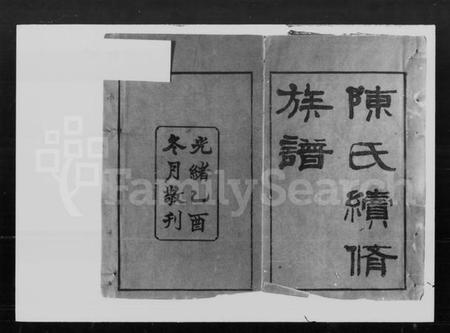 陳氏續脩
族譜
光緒乙酉
冬月敬刊
FamilySearch